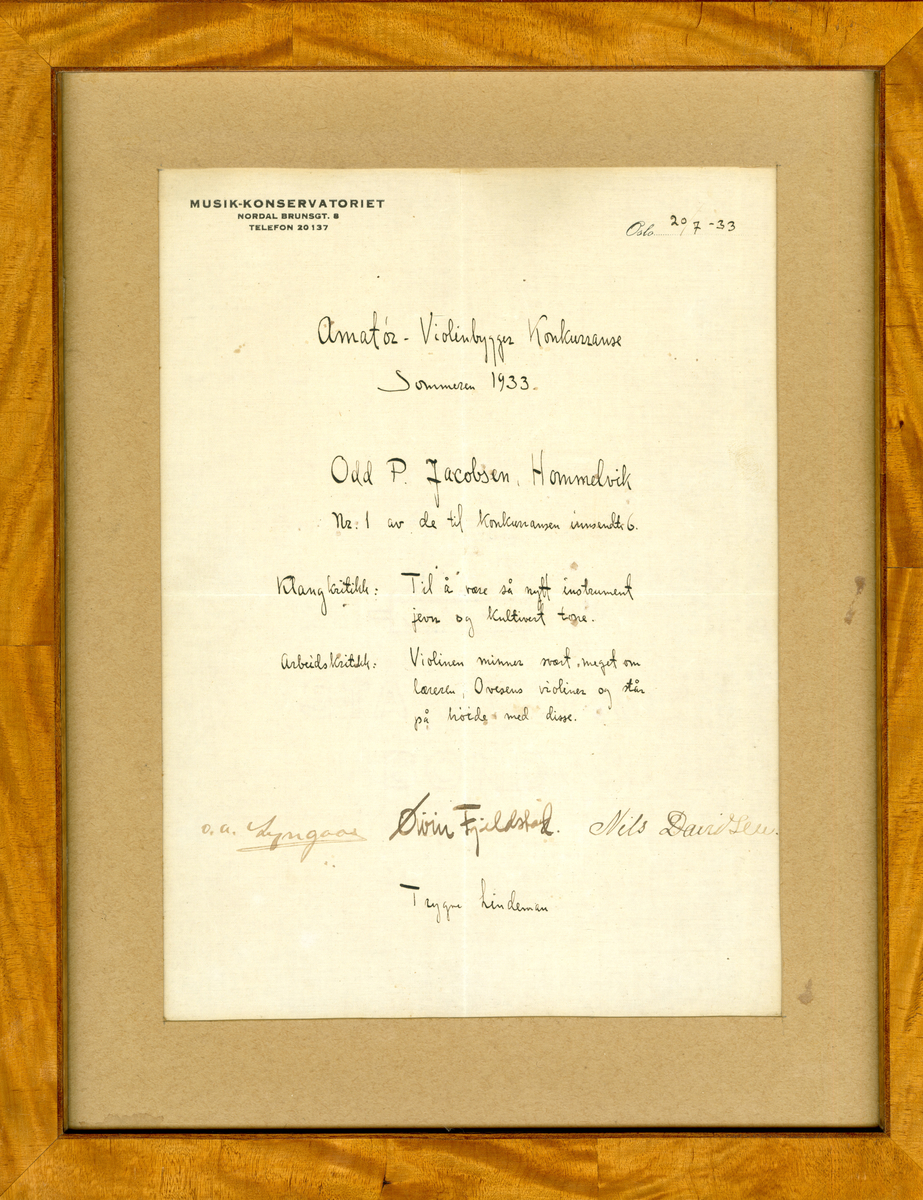 MUSIK-KONSERVATORIET
NORDAL BRUNSGT. 8
TELEFON 20137
Oslo 20/7-33
Amatør-Violinbygger Konkurranse
Sommeren 1933.
Odd P. Jacobsen, Hommelvik
Nr. 1 av de til konkurransen innsendte 6.
Klangkritikk: Til å være så nytt instrument
jevn og kultivert tone.
Arbeidskritikk: Violinen minner svært meget om
læreren, Ovesens violiner og står
på høide med disse.
O. A. Lyngaas Øivin Fjeldstad. Nils Davidsen.
Trygve Lindeman